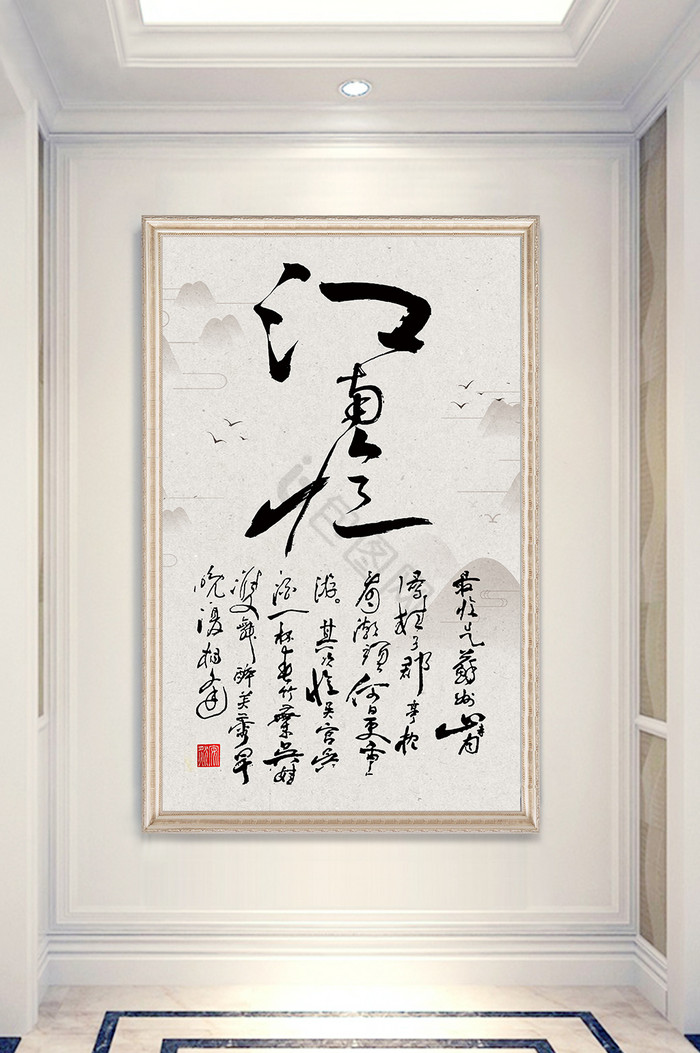 江南忆
最忆是蘇州山
尋桂子郡亭枕
看潮頭何日更重
游。其次忆吴宫吴
酒一杯春竹葉吴娃
雙舞醉芙蓉早
晚復相逢
包图网